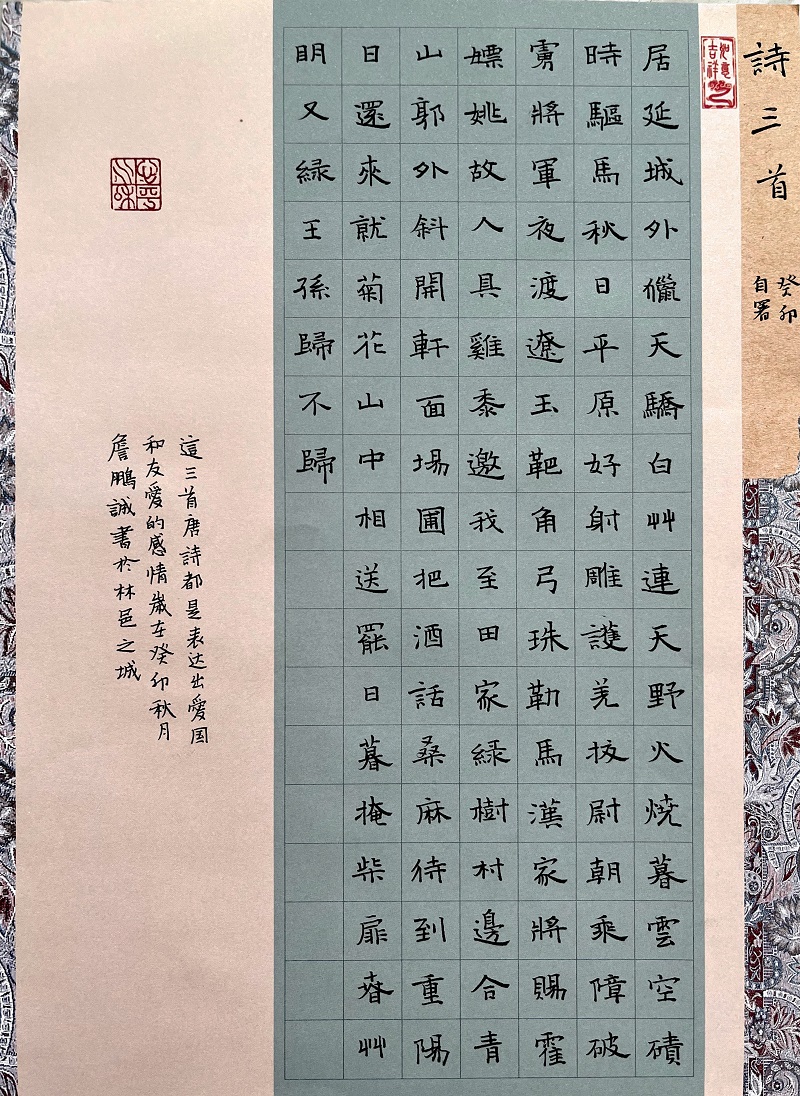 詩三首
癸卯
自署
如意吉祥
居延城外獵天驕白艸連天野火燒暮雲空磧
時驅馬秋日平原好射雕護羌挍尉朝乘障破
虜將軍夜渡遼玉靶角弓珠勒馬漢家將賜霍
嫖姚故人具雞黍邀我至田家綠樹村邊合青
山郭外斜開軒面場圃把酒話桑麻待到重陽
日還來就菊花山中相送罷日暮掩柴扉春艸
明又綠王孫歸不歸
這三首唐詩都是表达出愛国
和友愛的感情歲在癸卯秋月
詹鵬誠書於林邑之城